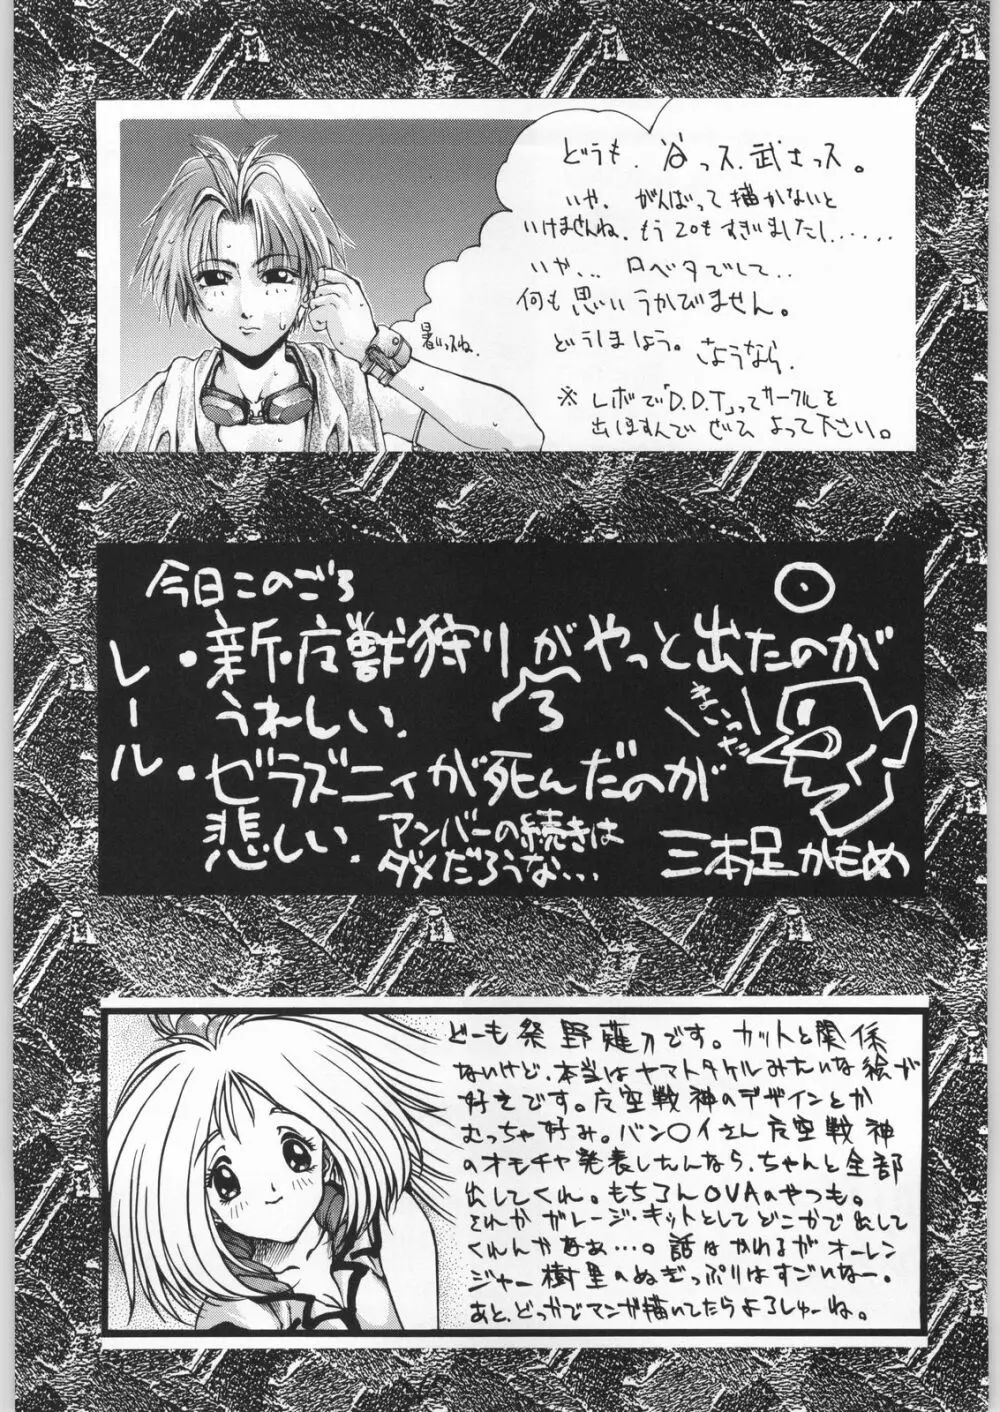 どうも、谷っス、武さっス。
いや、がんばって描かないと
いけませんね、もう20もすぎましたし.....
いや... ロベタでして..
何も思いうかびません。
どうしましょう。さようなら、
暑いっスね、
※レボで「D.D.T」ってサークルを
出ほすんで ぜひ よって下さい。
今日このごろ
レール
・新・魔獣狩りがやっと出たのが
うれしい、
ろ
・ゼラズニィが死んだのが
悲しい、
アンバーの続きは
ダメだろうな...
まこつだ
三本足かもめ
どーも祭野薙刀です。カットと関係
ないけど、本当はヤマトタケルみたいな絵が
好きです。魔空戦神のデザインとか
むっちゃ好み。バン〇イさん魔空戦神
のオモチャ発表したんなら、ちゃんと全部
出してくれ。もちろんOVAのやつも。
それか ガレージ・キットとしてどこかで出して
くれんかなぁ…。話はかわるがオーレン
ジャー樹里のぬぎっぷりはすごいなー。
あと、どっかでマンガ描いてたらよろしゅーね。